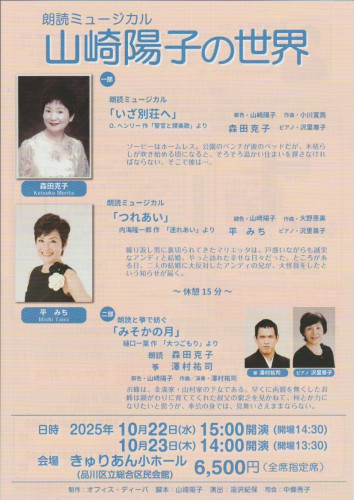 朗読ミュージカル
山崎陽子の世界
一部
朗読ミュージカル
「いざ別荘へ」
脚色・山崎陽子 作曲・小川寛興
O. ヘンリー 作「警官と讃美歌」より
森田克子 ピアノ・沢里尊子
ソーピーはホームレス。公園のベンチが彼のベッドだが、木枯ら
しが吹き始める頃になると、そろそろ温かい住まいを探さなけれ
ばならない。そこで彼は…。
森田克子
Katsuko Morita
朗読ミュージカル
「つれあい」
脚色・山崎陽子 作曲・大野惠美
内海隆一郎 作「連れあい」より
平 みち ピアノ・沢里尊子
繰り返し男に裏切られてきたマリエッタは、戸惑いながらも誠実
なアンディと結婚。やっと訪れた幸せな日々だった。ところがあ
る日、二人の結婚に大反対したアンディの兄が、大怪我をしたと
いう知らせが届く。
平 みち
Michi Taira
～ 休憩15分 ～
二部
朗読と箏で紡ぐ
「みそかの月」
樋口一葉 作「大つごもり」より
朗読 森田克子
箏 澤村祐司
脚色・山崎陽子 作曲/演奏・澤村祐司
箏 澤村祐司
ピアノ 沢里尊子
お峰は、金満家・山村家の下女である。早くに両親を無くしたお
峰は親がわりに育ててくれた叔父の窮乏を見かねて、何とか力に
なりたいと思うが、奉公の身では、見舞いさえままならない。
日時 2025年 10月22日(水) 15:00開演 (開場14:30)
10月23日(木) 14:00開演 (開場13:30)
会場 きゅりあん小ホール
(品川区立総合区民会館)
6,500円 (全席指定席)
制作:オフィス・ディーバ 脚本:山崎陽子 演出:湯沢紀保 司会:中條秀子